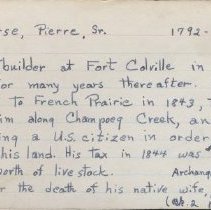 rse, Pierre, Sr. 1792-
builder at Fort Colville in
or many years thereafter.
To French Prairie in 1843,
im along Champoeg Creek, an
ing a U.S. citizen in order
his land. His tax in 1844 was
worth of livestock. Archang
r the death of his native wife,
(Bk. 2